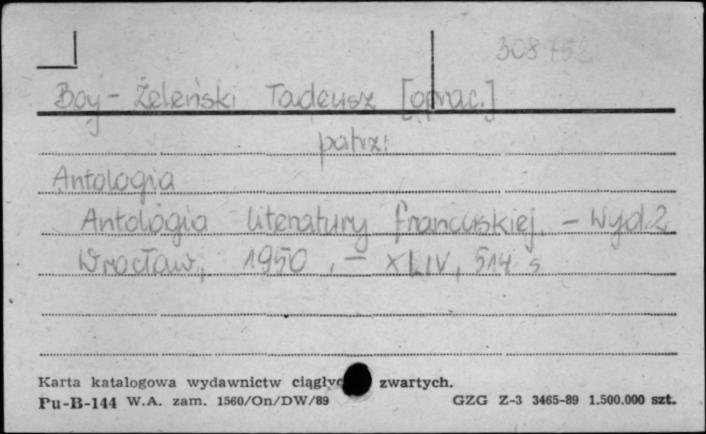 308752
Boy-Żeleński Tadeusz [oprac.]
patrz:
Antologia
Antologia literatury francuskiej. - Wyd. 2
Wrocław, 1950. - XLIV, 514 s
Karta katalogowa wydawnictw zwartych.
Pu-B-144 W.A. zam. 1560/On/DW/89 GZG Z-3 3465-89 1.500.000 szt.